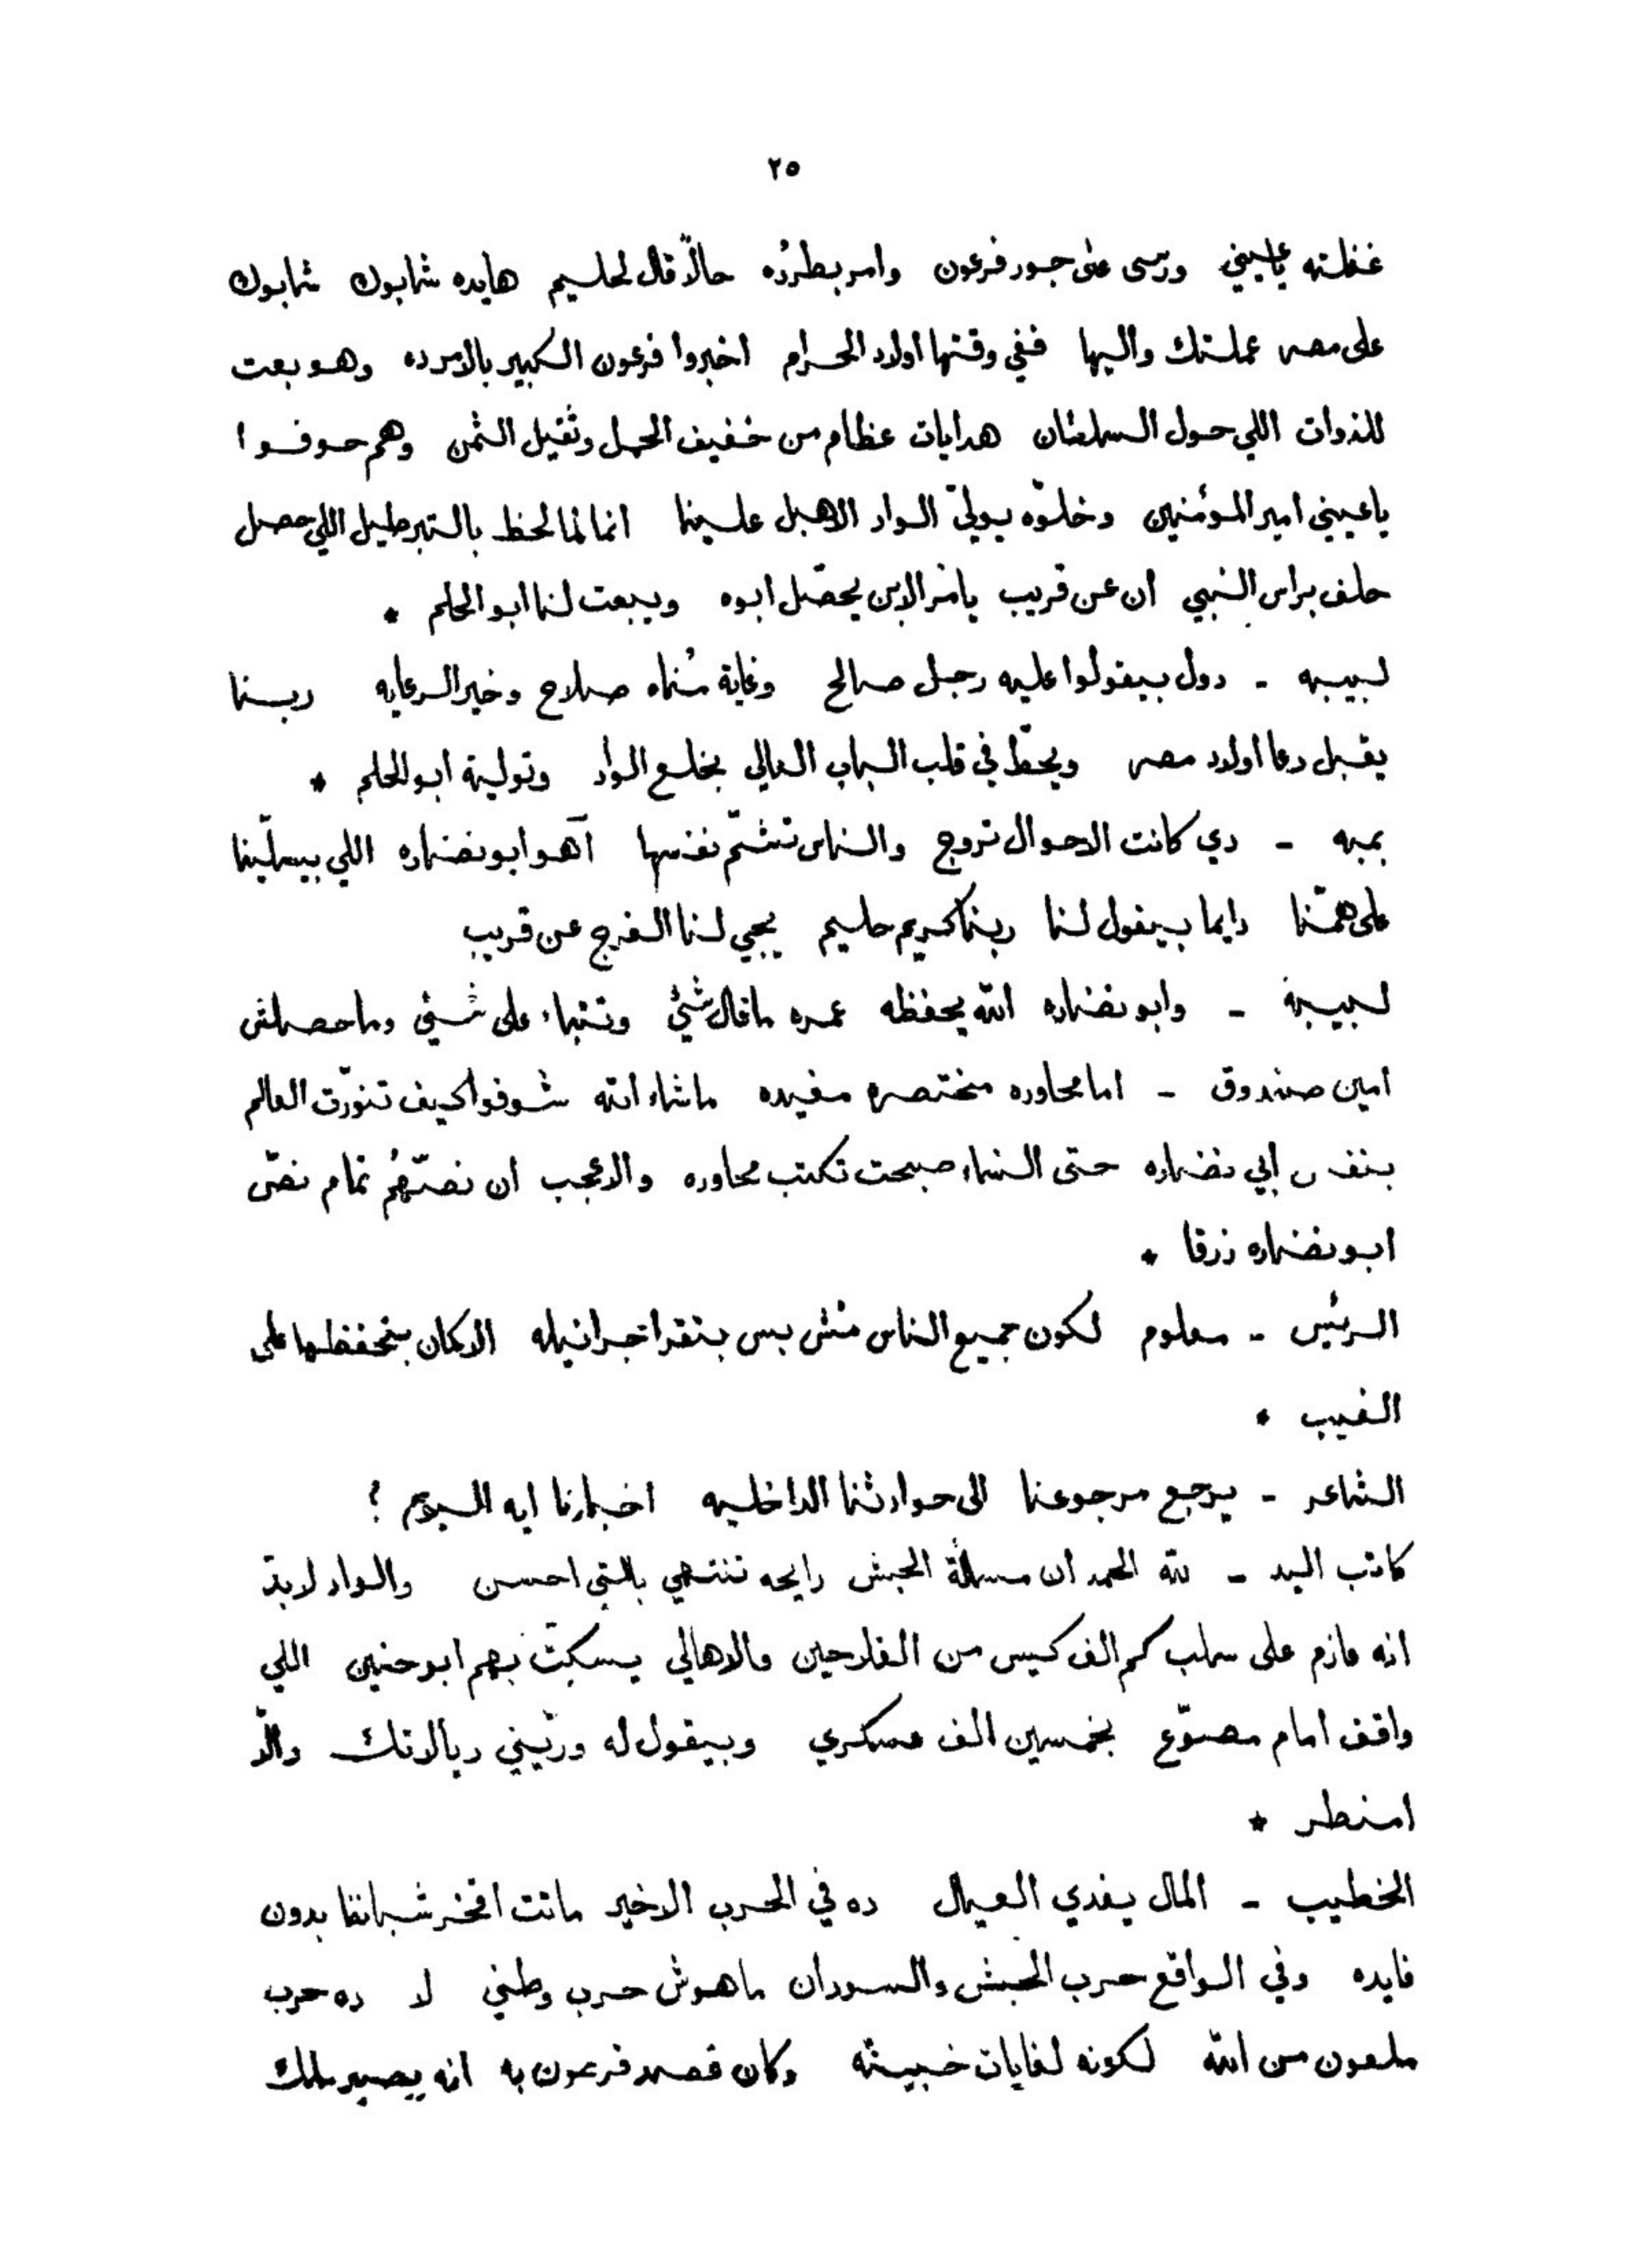 ٢٥
غفلته ياعيني ورسى على جور فرعون وامر بطرده حالاً قال لحليم هايده شابوك شابوك
على مصر عملتك واليها ففي وقتها اولاد الحرام اخبروا فرعون الكبير بالامرده وهو بعت
للذوات اللي حول السلطان هدايات عظام من خفيف الحمل وثقيل الثمن وهم حوفوا
ياعيني امير المؤمنين وخلّوه يولّي الواد الاهبل علينا انما لما لحظ بالتبرطيل اللي حصل
حلف براس النبي ان عن قريب يامر الابن يحصّل ابوه ويبعت لنا ابو الحلم *
لبيبه - دول بيقولوا عليه رجل صالح وغاية مُناه صلاح وخير الرعايه ربنا
يقبل دعا اولاد مصر ويحطّ في قلب الباب العالي بخلع الواد وتولية ابو الحلم *
بمبه - دي كانت الاحوال تروج والناس تشمّ نفسها آهو ابو نضاره اللي بيسلّينا
على همّنا دايما بيقول لنا ربنا كريم حليم يجي لنا الفرج عن قريب
لبيبة - وابو نضاره الله يحفظه عمره ما قال شئ وتنباء على شئ وما حصلش
امين صندوق - اما محاوره مختصره مفيده ماشاء الله شوفوا كيف تنوّرت العالم
بنفس ابي نضاره حتى النساء صبحت تكتب محاوره والاعجب ان نصّهُم تمام نصّ
ابو نضاره زرقا *
الرئيس - معلوم لكون جميع الناس مش بس بتقرا جرانيله الا كمان بتحفظها على
الغيب *
الشاعر - يرجع مرجوعنا الى حوادثنا الداخليه اخبارنا ايه اليوم ؟
كاتب اليد - لله الحمد ان مسألة الحبش رايحه تنتهي بالتي احسن والواد لابدّ
انه عازم على سلب كم الف كيس من الفلاحين والاهالي يسكّت بهم ابو حنين اللي
واقف امام مصوّع بخمسين الف عسكري وبيقول له ورّيني ريالاتك والّا
امنطر *
الخطيب - المال يفدي العيال ده في الحرب الاخير ماتت افخر شباننا بدون
فايده وفي الواقع حرب الحبش والسودان ماهوش حرب وطني لا ده حرب
ملعون من الله لكونه لغايات خبيثه وكان قصد فرعون به انه يصير ملك